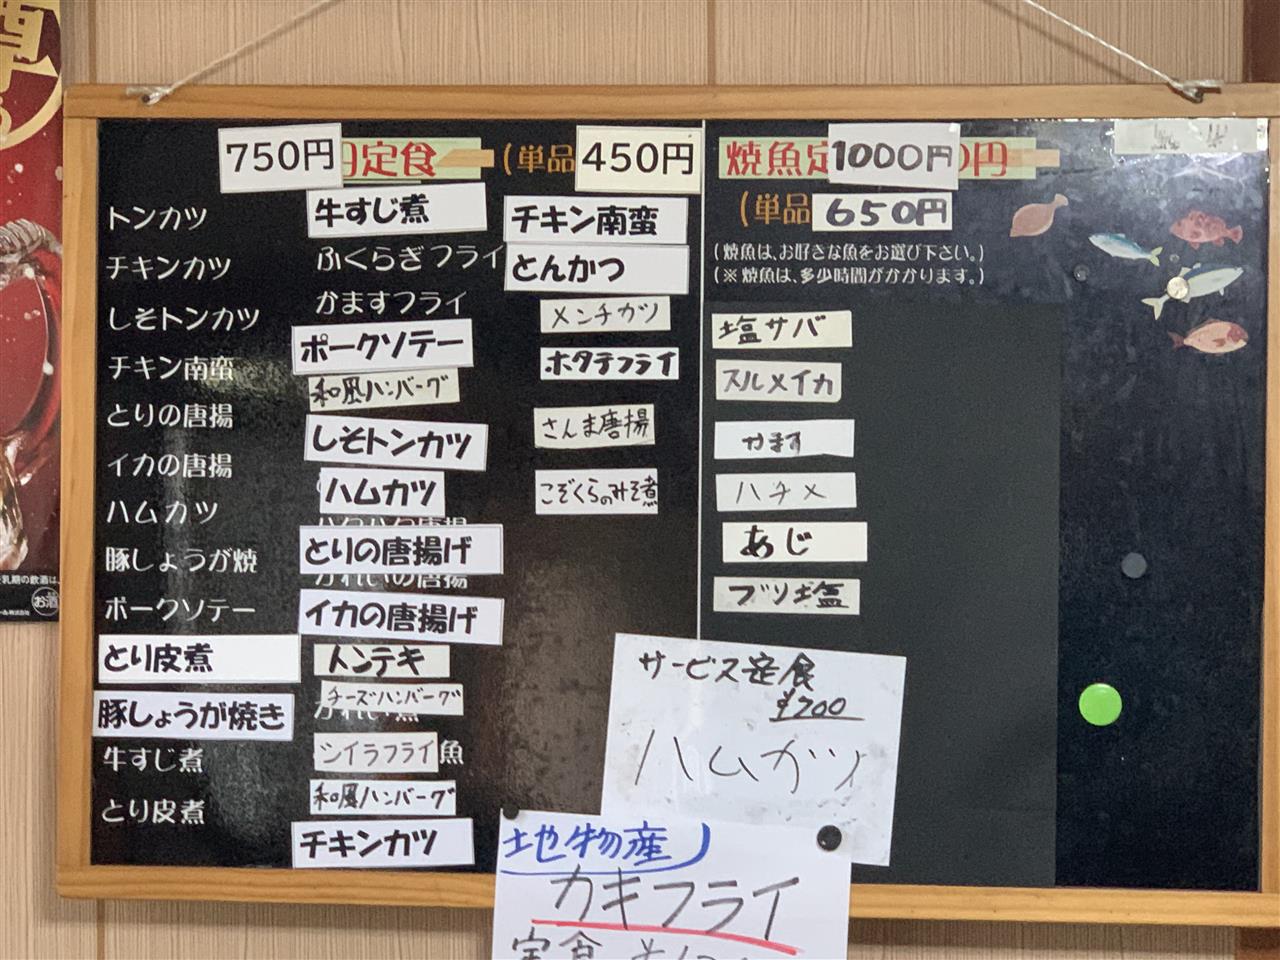 750円
円定食
(単品
450円
トンカツ
チキンカツ
しそトンカツ
チキン南蛮
とりの唐揚
イカの唐揚
ハムカツ
豚しょうが焼
ポークソテー
とり皮煮
豚しょうが焼き
牛すじ煮
とり皮煮
牛すじ煮
ふくらぎフライ
かますフライ
ポークソテー
和風ハンバーグ
しそトンカツ
ハムカツ
とりの唐揚げ
かれいの唐揚
イカの唐揚げ
トンテキ
チーズハンバーグ
シイラフライ
魚
和風ハンバーグ
チキンカツ
チキン南蛮
とんかつ
メンチカツ
ホタテフライ
さんま唐揚
こぞくらのみそ煮
焼魚定
1000円
円
(単品
650円
(焼魚は、お好きな魚をお選び下さい。)
(※焼魚は、多少時間がかかります。)
塩サバ
スルメイカ
かます
ハチメ
あじ
ブリ塩
サービス定食
¥700
ハムカツ
地物産
カキフライ
定食
お酒